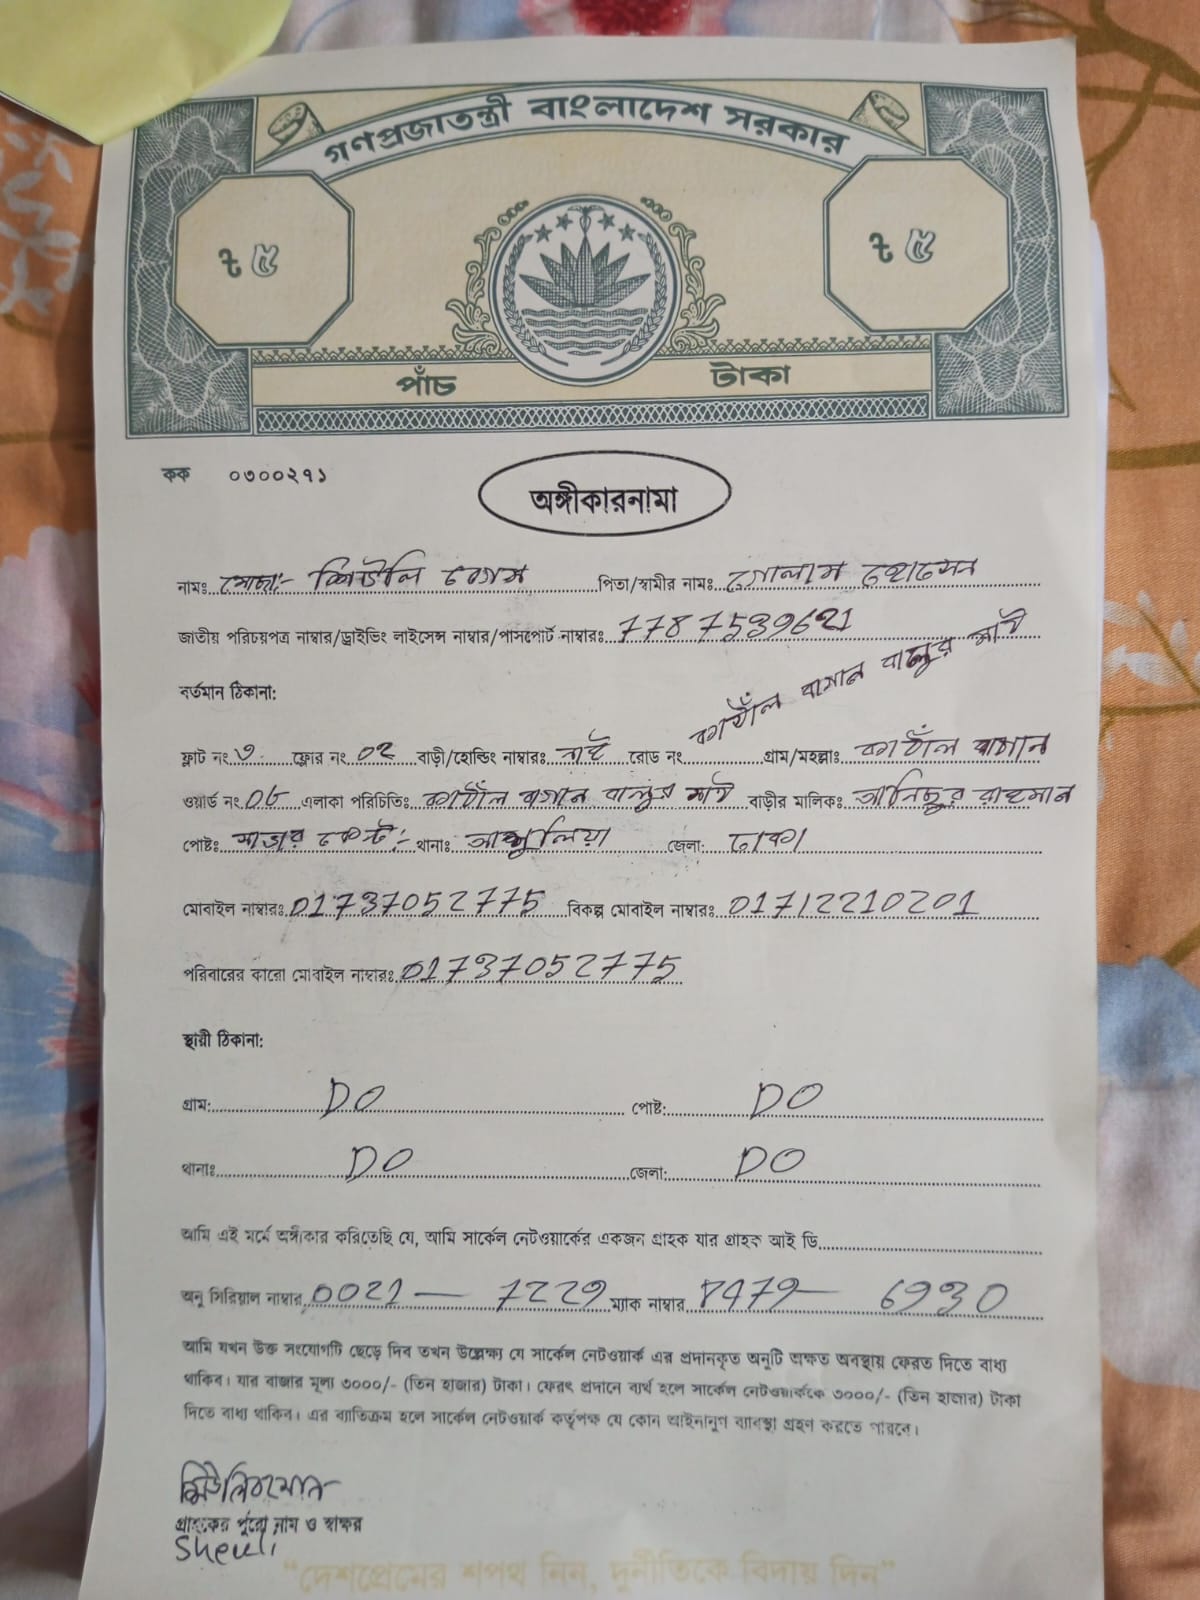 গণপ্রজাতন্ত্রী বাংলাদেশ সরকার
৳ ৫ ৳ ৫
পাঁচ টাকা
কক ০৩০০২৭১
অঙ্গীকারনামা
নামঃ মোছাঃ- শিউলি বেগম পিতা/স্বামীর নামঃ গোলাম হোসেন
জাতীয় পরিচয়পত্র নাম্বার/ড্রাইভিং লাইসেন্স নাম্বার/পাসপোর্ট নাম্বারঃ 7787539621
বর্তমান ঠিকানা:
ফ্লাট নং ৩ ফ্লোর নং ০২ বাড়ী/হোল্ডিং নাম্বারঃ নাই রোড নং কাঠাঁল বাগান বালুর মাঠ গ্রাম/মহল্লাঃ কাঠাঁল বাগান
ওয়ার্ড নং 06 এলাকা পরিচিতিঃ কাঠাঁল বাগান বালুর মাঠ বাড়ীর মালিকঃ আনিছুর রাহমান
পোষ্টঃ সাভার থানাঃ আশুলিয়া জেলা: ঢাকা
মোবাইল নাম্বারঃ 01737052775 বিকল্প মোবাইল নাম্বারঃ 01712210201
পরিবারের কারো মোবাইল নাম্বারঃ 01737052775
স্থায়ী ঠিকানা:
গ্রাম: DO পোষ্ট: DO
থানাঃ DO জেলা: DO
আমি এই মর্মে অঙ্গীকার করিতেছি যে, আমি সার্কেল নেটওয়ার্কের একজন গ্রাহক যার গ্রাহক আই ডি
অনু সিরিয়াল নাম্বার 0021 — 7229 ম্যাক নাম্বার 8479 — 6930
আমি যখন উক্ত সংযোগটি ছেড়ে দিব তখন উল্লেক্ষ্য যে সার্কেল নেটওয়ার্ক এর প্রদানকৃত অনুটি অক্ষত অবস্থায় ফেরত দিতে বাধ্য
থাকিব। যার বাজার মূল্য ৩০০০/- (তিন হাজার) টাকা। ফেরৎ প্রদানে ব্যর্থ হলে সার্কেল নেটওয়ার্ককে ৩০০০/- (তিন হাজার) টাকা
দিতে বাধ্য থাকিব। এর ব্যাতিক্রম হলে সার্কেল নেটওয়ার্ক কর্তৃপক্ষ যে কোন আইনানুগ ব্যাবস্থা গ্রহণ করতে পারবে।
গ্রাহকের পুরো নাম ও স্বাক্ষর
Sheuli
“দেশপ্রেমের শপথ নিন, দুর্নীতিকে বিদায় দিন”